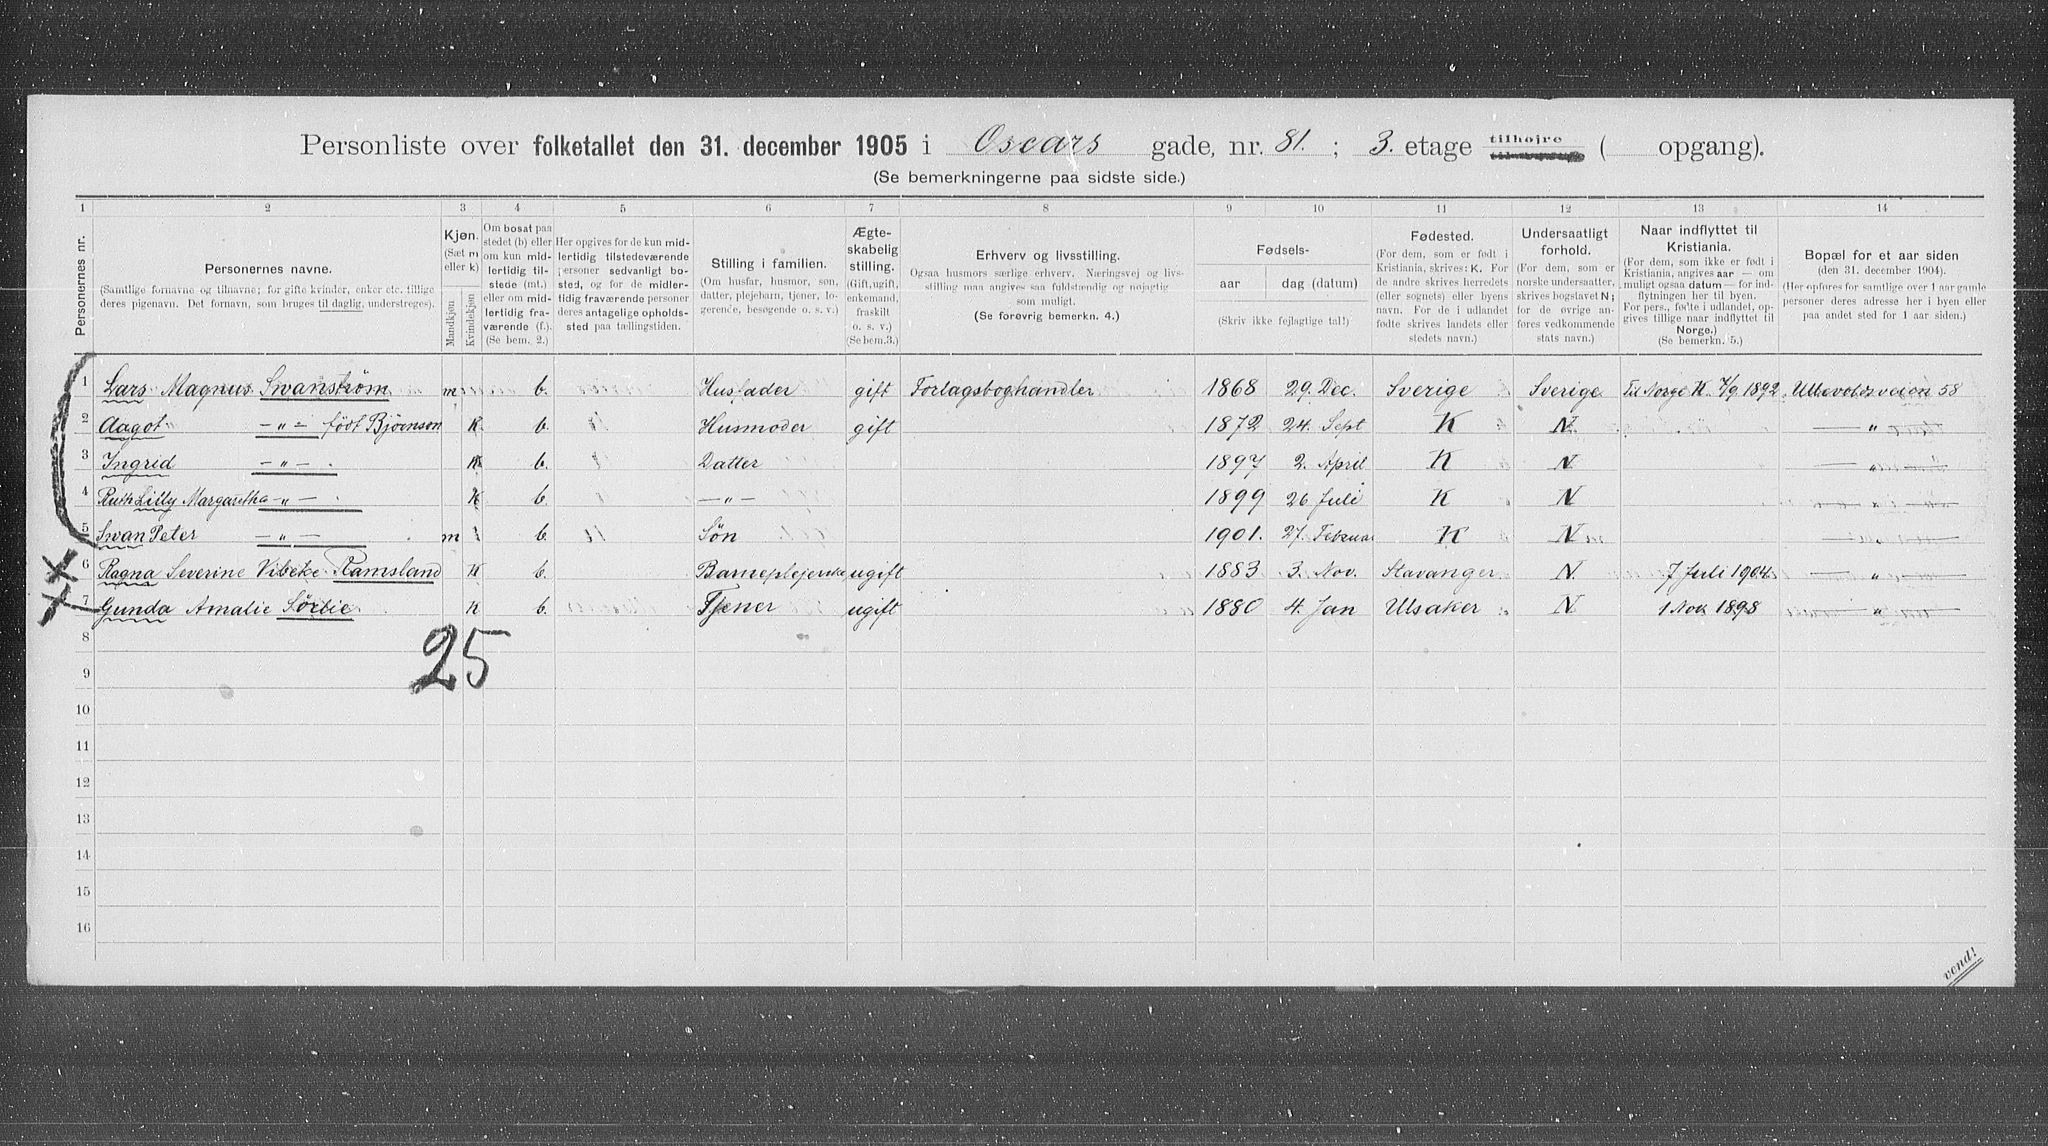 Personliste over folketallet den 31. december 1905 i Oscars gade, nr. 81. ; 3. etage tilhøjre ( opgang).
(Se bemerkningerne paa sidste side.)
1 2 3 4 5 6 7 8 9 10 11 12 13 14
Personernes nr.
Personernes navne.
(Samtlige fornavne og tilnavne; for gifte kvinder, enker etc. tillige
deres pigenavn. Det fornavn, som bruges til daglig, understreges).
Kjøn.
(Sæt m
eller k)
Mandkjøn
Kvindekjøn
Om bosat paa
stedet (b) eller
om kun mid-
lertidig til-
stede (mt.)
eller om mid-
lertidig fra-
værende (f.).
(Se bem. 2.)
Her opgives for de kun mid-
lertidig tilstedeværende
personer sedvanligt bo-
sted, og for de midler-
tidig fraværende personer
deres antagelige opholds-
sted paa tællingstiden.
Stilling i familien.
(Om husfar, husmor, søn,
datter, plejebarn, tjener, lo-
gerende, besøgende o. s. v.)
Ægte-
skabelig
stilling.
(Gift, ugift,
enkemand,
fraskilt
o. s. v.)
(Se bem.3.)
Erhverv og livsstilling.
Ogsaa husmors særlige erhverv. Næringsvej og livs-
stilling maa angives saa fuldstændig og nøjagtig
som muligt.
(Se forøvrig bemerkn. 4.)
Fødsels-
aar dag (datum)
(Skriv ikke fejlagtige tal!)
Fødested.
(For dem, som er født i
Kristiania, skrives: K. For
de andre skrives herredets
(eller sognets) eller byens
navn. For de i udlandet
fødte skrives landets eller
stedets navn.)
Undersaatligt
forhold.
(For dem, som er
norske undersaatter,
skrives bogstavet N;
for de øvrige an-
føres vedkommende
stats navn.)
Naar indflyttet til
Kristiania.
(For dem, som ikke er født i
Kristiania, angives aar — om
muligt ogsaa datum — for ind-
flytningen her til byen.
For pers., fødte i udlandet, op-
gives tillige naar indflyttet til
Norge.)
(Se bemerkn. 5.)
Bopæl for et aar siden
(den 31. december 1904).
(Her opføres for samtlige over 1 aar gamle
personer deres adresse her i byen eller
paa andet sted for 1 aar siden.)
1 Lars Magnus Swanstrøm m b. Husfader gift Forlagsboghandler 1868 29. Dec. Sverige Sverige Til Norge K. 7/9 1892 Ullevolsveien 58
2 Aagot —„— født Bjørnson K. b. Husmoder gift 1872 24. Sept K N —„—
3 Ingrid —„— K b. Datter 1897 2. April K N —„—
4 Ruth Lilly Margaretha —„— K b. —„— 1899 26 Juli K N —„—
5 Swan Peter —„— m b. Søn 1901. 27. Februar K N —„—
6 Ragna Severine Vibeke Ramsland K b. Barneplejerske ugift 1883 3. Nov. Stavanger N. 7 Juli 1904 —„—
7 Gunda Amalie Sørlie K b. Tjener ugift 1880 4. Jan Ulsaker N 1 Nov. 1898 —„—
8
25
9
10
11
12
13
14
15
16
vend!